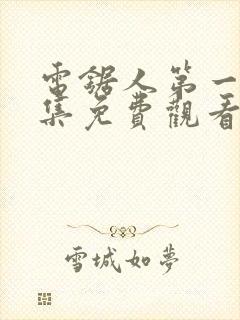 電鋸人第一
集免費觀看
雪城如夢